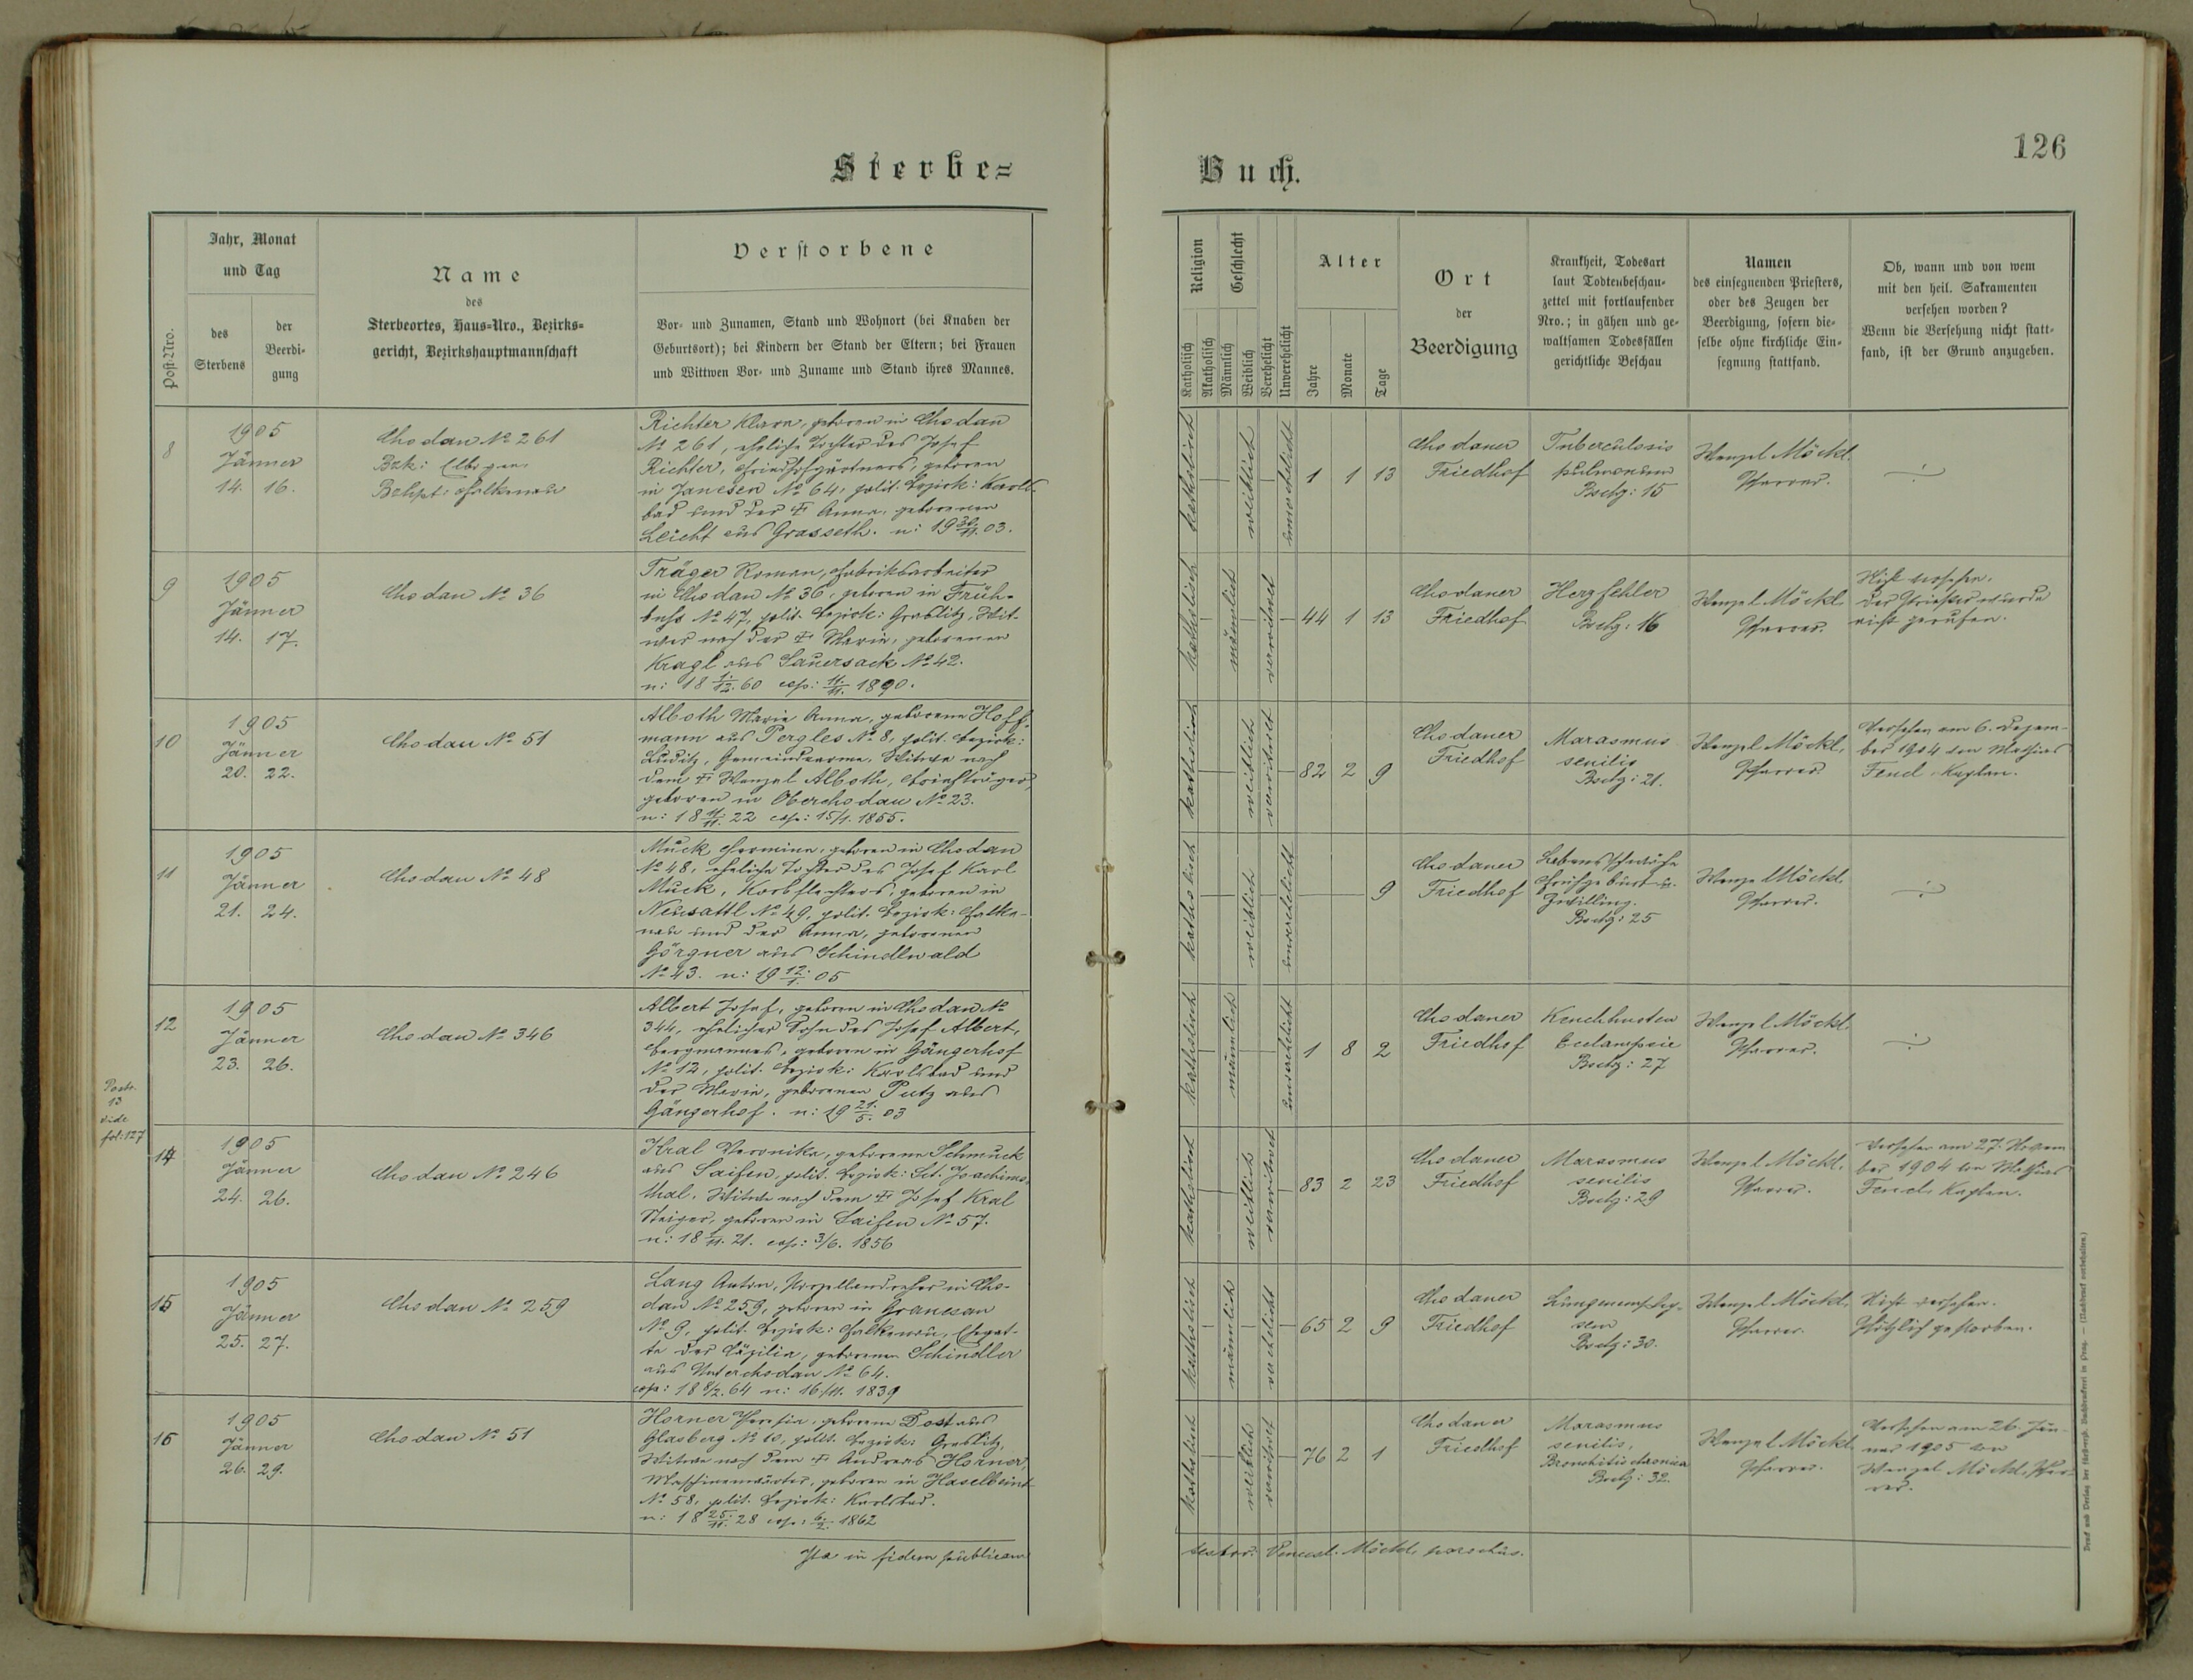 126
Sterbe=
Buch.
Post-Nro.
Jahr, Monat
und Tag
des
Sterbens
der
Beerdi-
gung
Name
des
Sterbeortes, Haus=Nro., Bezirks=
gericht, Bezirkshauptmannschaft
Verstorbene
Vor- und Zunamen, Stand und Wohnort (bei Knaben der
Geburtsort); bei Kindern der Stand der Eltern; bei Frauen
und Wittwen Vor- und Zuname und Stand ihres Mannes.
Religion
Katholisch
Akatholisch
Geschlecht
Männlich
Weiblich
Verehelicht
Unverehelicht
Alter
Jahre
Monate
Tage
Ort
der
Beerdigung
Krankheit, Todesart
laut Todtenbeschau-
zettel mit fortlaufender
Nro.; in gähen und ge-
waltsamen Todesfällen
gerichtliche Beschau
Namen
des einsegnenden Priesters,
oder des Zeugen der
Beerdigung, sofern die-
selbe ohne kirchliche Ein-
segnung stattfand.
Ob, wann und von wem
mit den heil. Sakramenten
versehen worden?
Wenn die Versehung nicht statt-
fand, ist der Grund anzugeben.
8
1905
Jänner
14. 16.
Chodau № 261
Bzk: Elbogen
Bzhpt: Falkenau
Richter Klara, geboren in Chodau
№ 261, eheliche Tochter des Josef
Richter, Friedhofgärtners, geboren
in Janessen № 64, polit. Bezirk: Karls-
bad und der † Anna, geborenen
Leicht aus Grasseth. n: 19 30./11. 03.
katholisch
weiblich
unverehelicht
1 1 13
Chodauer
Friedhof
Tuberculosis
pulmonum
Bschg: 15
Wenzel Möckl.
Pfarrer.
9
1905
Jänner
14. 17.
Chodau № 36
Träger Roman, Fabriksarbeiter
in Chodau № 36, geboren in Früh-
buss № 47, polit. Bezirk: Graslitz, Wit-
wer nach der † Maria, geborenen
Kragl aus Sauersack № 42.
n: 18 1./12. 60 cop: 11./11. 1890.
katholisch
männlich
verwitwet
44 1 13
Chodauer
Friedhof
Herzfehler
Bschg: 16
Wenzel Möckl,
Pfarrer.
Nicht versehen.
Der Priester wurde
nicht gerufen.
10
1905
Jänner
20. 22.
Chodau № 51
Alboth Maria Anna, geborene Hoff-
mann aus Pergles № 8, polit. Bezirk:
Luditz, Gemeindearme, Witwe nach
dem † Wenzel Alboth, Briefträger,
geboren in Oberchodau № 23.
n: 18 11./11. 22 cop: 15/1. 1855.
katholisch
weiblich
verwitwet
82 2 9
Chodauer
Friedhof
Marasmus
senilis
Bschg: 21.
Wenzel Möckl,
Pfarrer.
Versehen am 6. Dezem-
ber 1904 von Mathias
Fencl Kaplan.
11
1905
Jänner
21. 24.
Chodau № 48
Muck Hermine, geboren in Chodau
№ 48, eheliche Tochter des Josef Karl
Muck, Korbflechters, geboren in
Neusattl № 49, polit. Bezirk: Falke-
nau und der Anna, geborenen
Görgner aus Schindlwald
№ 43. n: 19 12./1. 05
katholisch
weiblich
unverehelicht
9
Chodauer
Friedhof
Lebensschwäche
Frühgeburt u.
Zwilling.
Bschg: 25
Wenzel Möckl,
Pfarrer.
12
1905
Jänner
23. 26.
Chodau № 346
Albert Josef, geboren in Chodau №
344, ehelicher Sohn des Josef Albert,
Bergmannes, geboren in Gängerhof
№ 12, polit. Bezirk: Karlsbad und
der Maria, geborenen Putz aus
Gängerhof. n: 19 21./5. 03
katholisch
männlich
unverehelicht
1 8 2
Chodauer
Friedhof
Keuchhusten
Eclampsie
Bschg: 27
Wenzel Möckl,
Pfarrer.
Postn.
13
vide
fol: 127
14
1905
Jänner
24. 26.
Chodau № 246
Kral Veronika, geborene Schmuck
aus Saifen, polit. Bezirk: Skt. Joachims-
thal, Witwe nach dem † Josef Kral
Steiger, geboren in Saifen № 57.
n: 18 1./11. 21. cop: 3/6. 1856
katholisch
weiblich
verwitwet
83 2 23
Chodauer
Friedhof
Marasmus
senilis
Bschg: 29
Wenzel Möckl,
Pfarrer.
Versehen am 27. Novem-
ber 1904 von Mathias
Fencl, Kaplan.
15
1905
Jänner
25. 27.
Chodau № 259
Lang Anton, Porzellandreher in Cho-
dau № 259, geboren in Granesau
№ 9, polit. Bezirk: Falkenau, Ehegat-
te der Cäzilia, geborenen Schindler
aus Unterchodau № 64.
cop: 18 8/2. 64 n: 16./11. 1839
katholisch
männlich
verehelicht
65 2 9
Chodauer
Friedhof
Lungenemphy-
sem
Bschg: 30.
Wenzel Möckl,
Pfarrer.
Nicht versehen.
Plötzlich gestorben.
16
1905
Jänner
26. 29.
Chodau № 51
Horner Theresia, geborene Dost aus
Glasberg № 10, polit. Bezirk: Graslitz,
Witwe nach dem † Andreas Horner,
Maschinenwärter, geboren in Haselbrunn
№ 58, polit. Bezirk: Karlsbad.
n: 18 25./11. 28 cop: 6./2. 1862
katholisch
weiblich
verwitwet
76 2 1
Chodauer
Friedhof
Marasmus
senilis,
Bronchitis chronica
Bschg: 32.
Wenzel Möckl,
Pfarrer.
Versehen am 26. Jän-
ner 1905 von
Wenzel Möckl, Pfar-
rer.
Ita in fidem publicam
testor: Vencesl. Möckl, parochus.
Druck und Verlag der fürsterzb. Buchdruckerei in Prag. — (Nachdruck vorbehalten.)